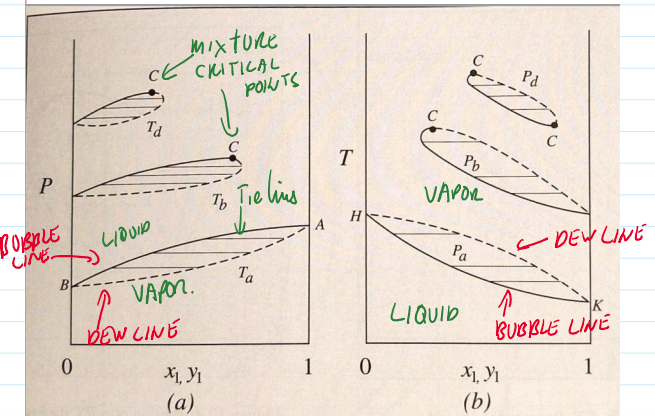 MIXTURE
CRITICAL
POINTS
C
C
T_d
P
T_b
Tie lines
LIQUID
BUBBLE
LINE
A
T_a
B
VAPOR.
DEW LINE
0
1
x₁, y₁
(a)
C
P_d
C
C
T
P_b
VAPOR
H
DEW LINE
P_a
K
LIQUID
BUBBLE LINE
0
1
x₁, y₁
(b)